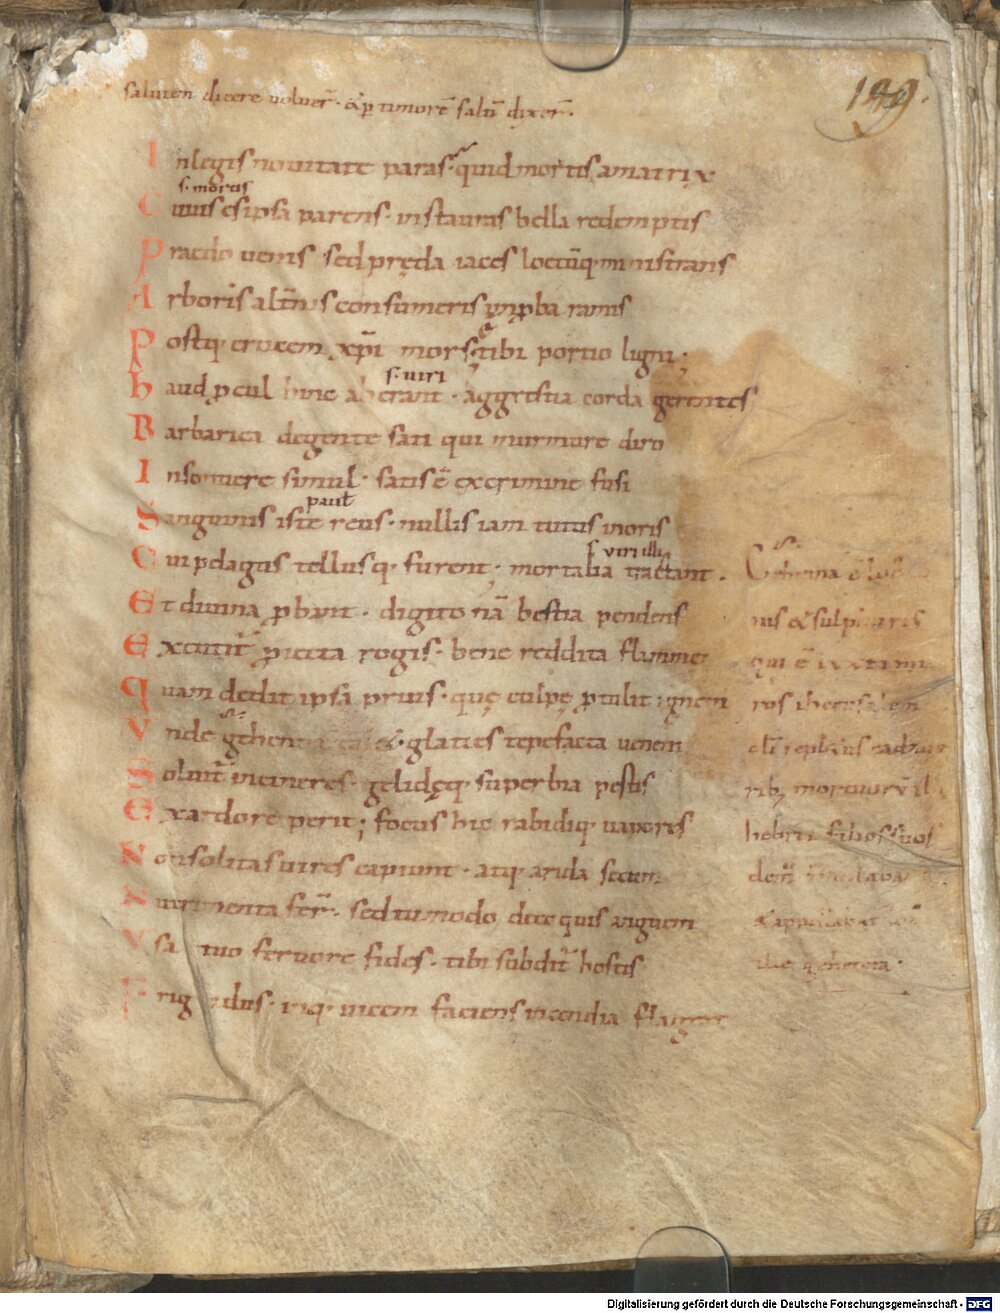 salutem dicere voluer̄· & ꝓ timorē salū dixer̄·
149.
In legis novitate paras· quid mortis amatrix
s· mortis
Cuius es ipsa parens· instauras bella redemptis
Praedo venis sed pręda iaces loetūq· ministrans
Arboris alt̄ius consumeris ramis
Postq· crucem xp̄i mors· ę tibi portio ligni;
s· viri
haud ꝓcul hinc aberant· aggrestia corda gerentes
Barbarica de gente sati qui murmure diro
Insonuere simul· satis ē ex crimine fusi
paul̄
Sanguinis iste reus· nullis iam tutus inoris
s· viri illi
Cui pelagus tellusq· furent· mortalia tractant.
Et divina ꝓbant· digito nā bestia pendens
Excutit̄ ꝓiecta rogis· bene reddita flamme
quam dedit ipsa prius· quę culpę ꝓtulit ignem
Unde glaties tepefacta venem
Solvit̄ in cineres· gelidęq· superbia pestis
Ex ardore perit; focus hic rabidiq· vaporis
Non solitas vires capiunt· atq· arida secum
Nutrimenta fer̄· sed tu modo dic quis
tuo fervore fides· tibi subdit̄ hostis
Frigidus· vicem faciens incendia
Gehenna ē
ius & sulphuris
qui ē iuxta mu
ros iherusalem
rib; mortuorū
hebrei filios suos
& appellabat
ille gehenna·
Digitalisierung gefördert durch die Deutsche Forschungsgemeinschaft - DFG